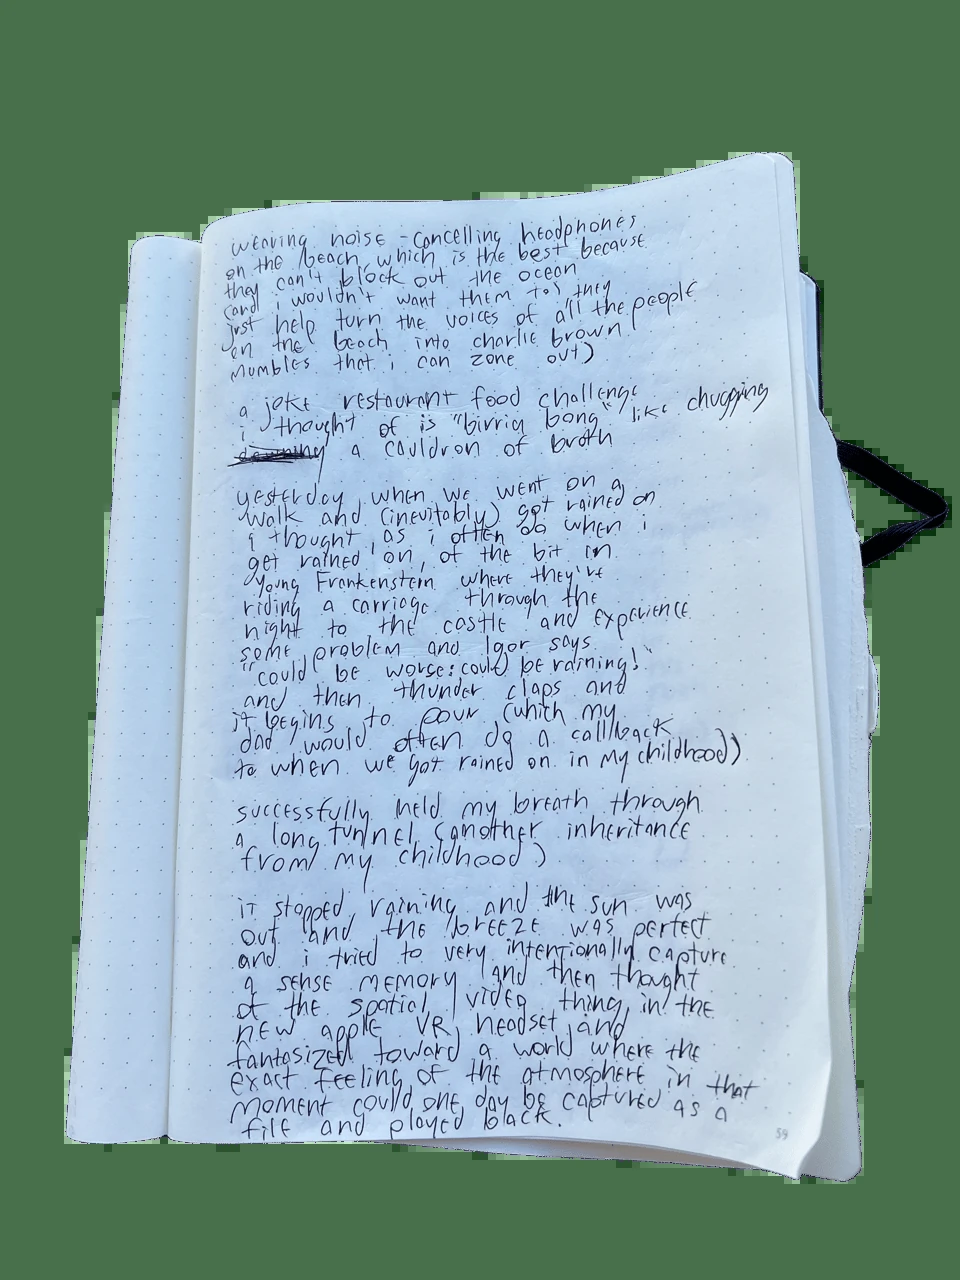 wearing noise-cancelling headphones
on the beach, which is the best because
they can't block out the ocean
(and i wouldn't want them to) they
just help turn the voices of all the people
on the beach into charlie brown
mumbles that i can zone out)
a joke restaurant food challenge
i thought of is "birria bong" like chugging
a cauldron of broth
yesterday, when we went on a
walk and (inevitably) got rained on
i thought, as i often do when i
get rained on, of the bit in
Young Frankenstein where they're
riding a carriage through the
night to the castle and experience
some problem and Igor says
"could be worse: could be raining!"
and then thunder claps and
it begins to pour (which my
dad would often do a callback
to when we got rained on in my childhood)
successfully held my breath through
a long tunnel (another inheritance
from my childhood)
it stopped raining and the sun was
out and the breeze was perfect
and i tried to very intentionally capture
a sense memory and then thought
of the spatial video thing in the
new apple VR headset and
fantasized toward a world where the
exact feeling of the atmosphere in that
moment could one day be captured as a
file and played back.
59